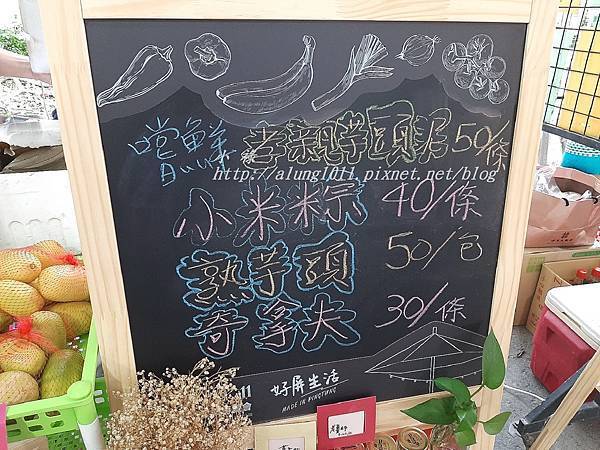 嚐鮮 老粿芋頭泥 50/條
http://alung1011.pixnet.net/blog
小米粽 40/條
熟芋頭 50/包
奇拿夫 30/條
好屏生活
MADE IN PINGTUNG